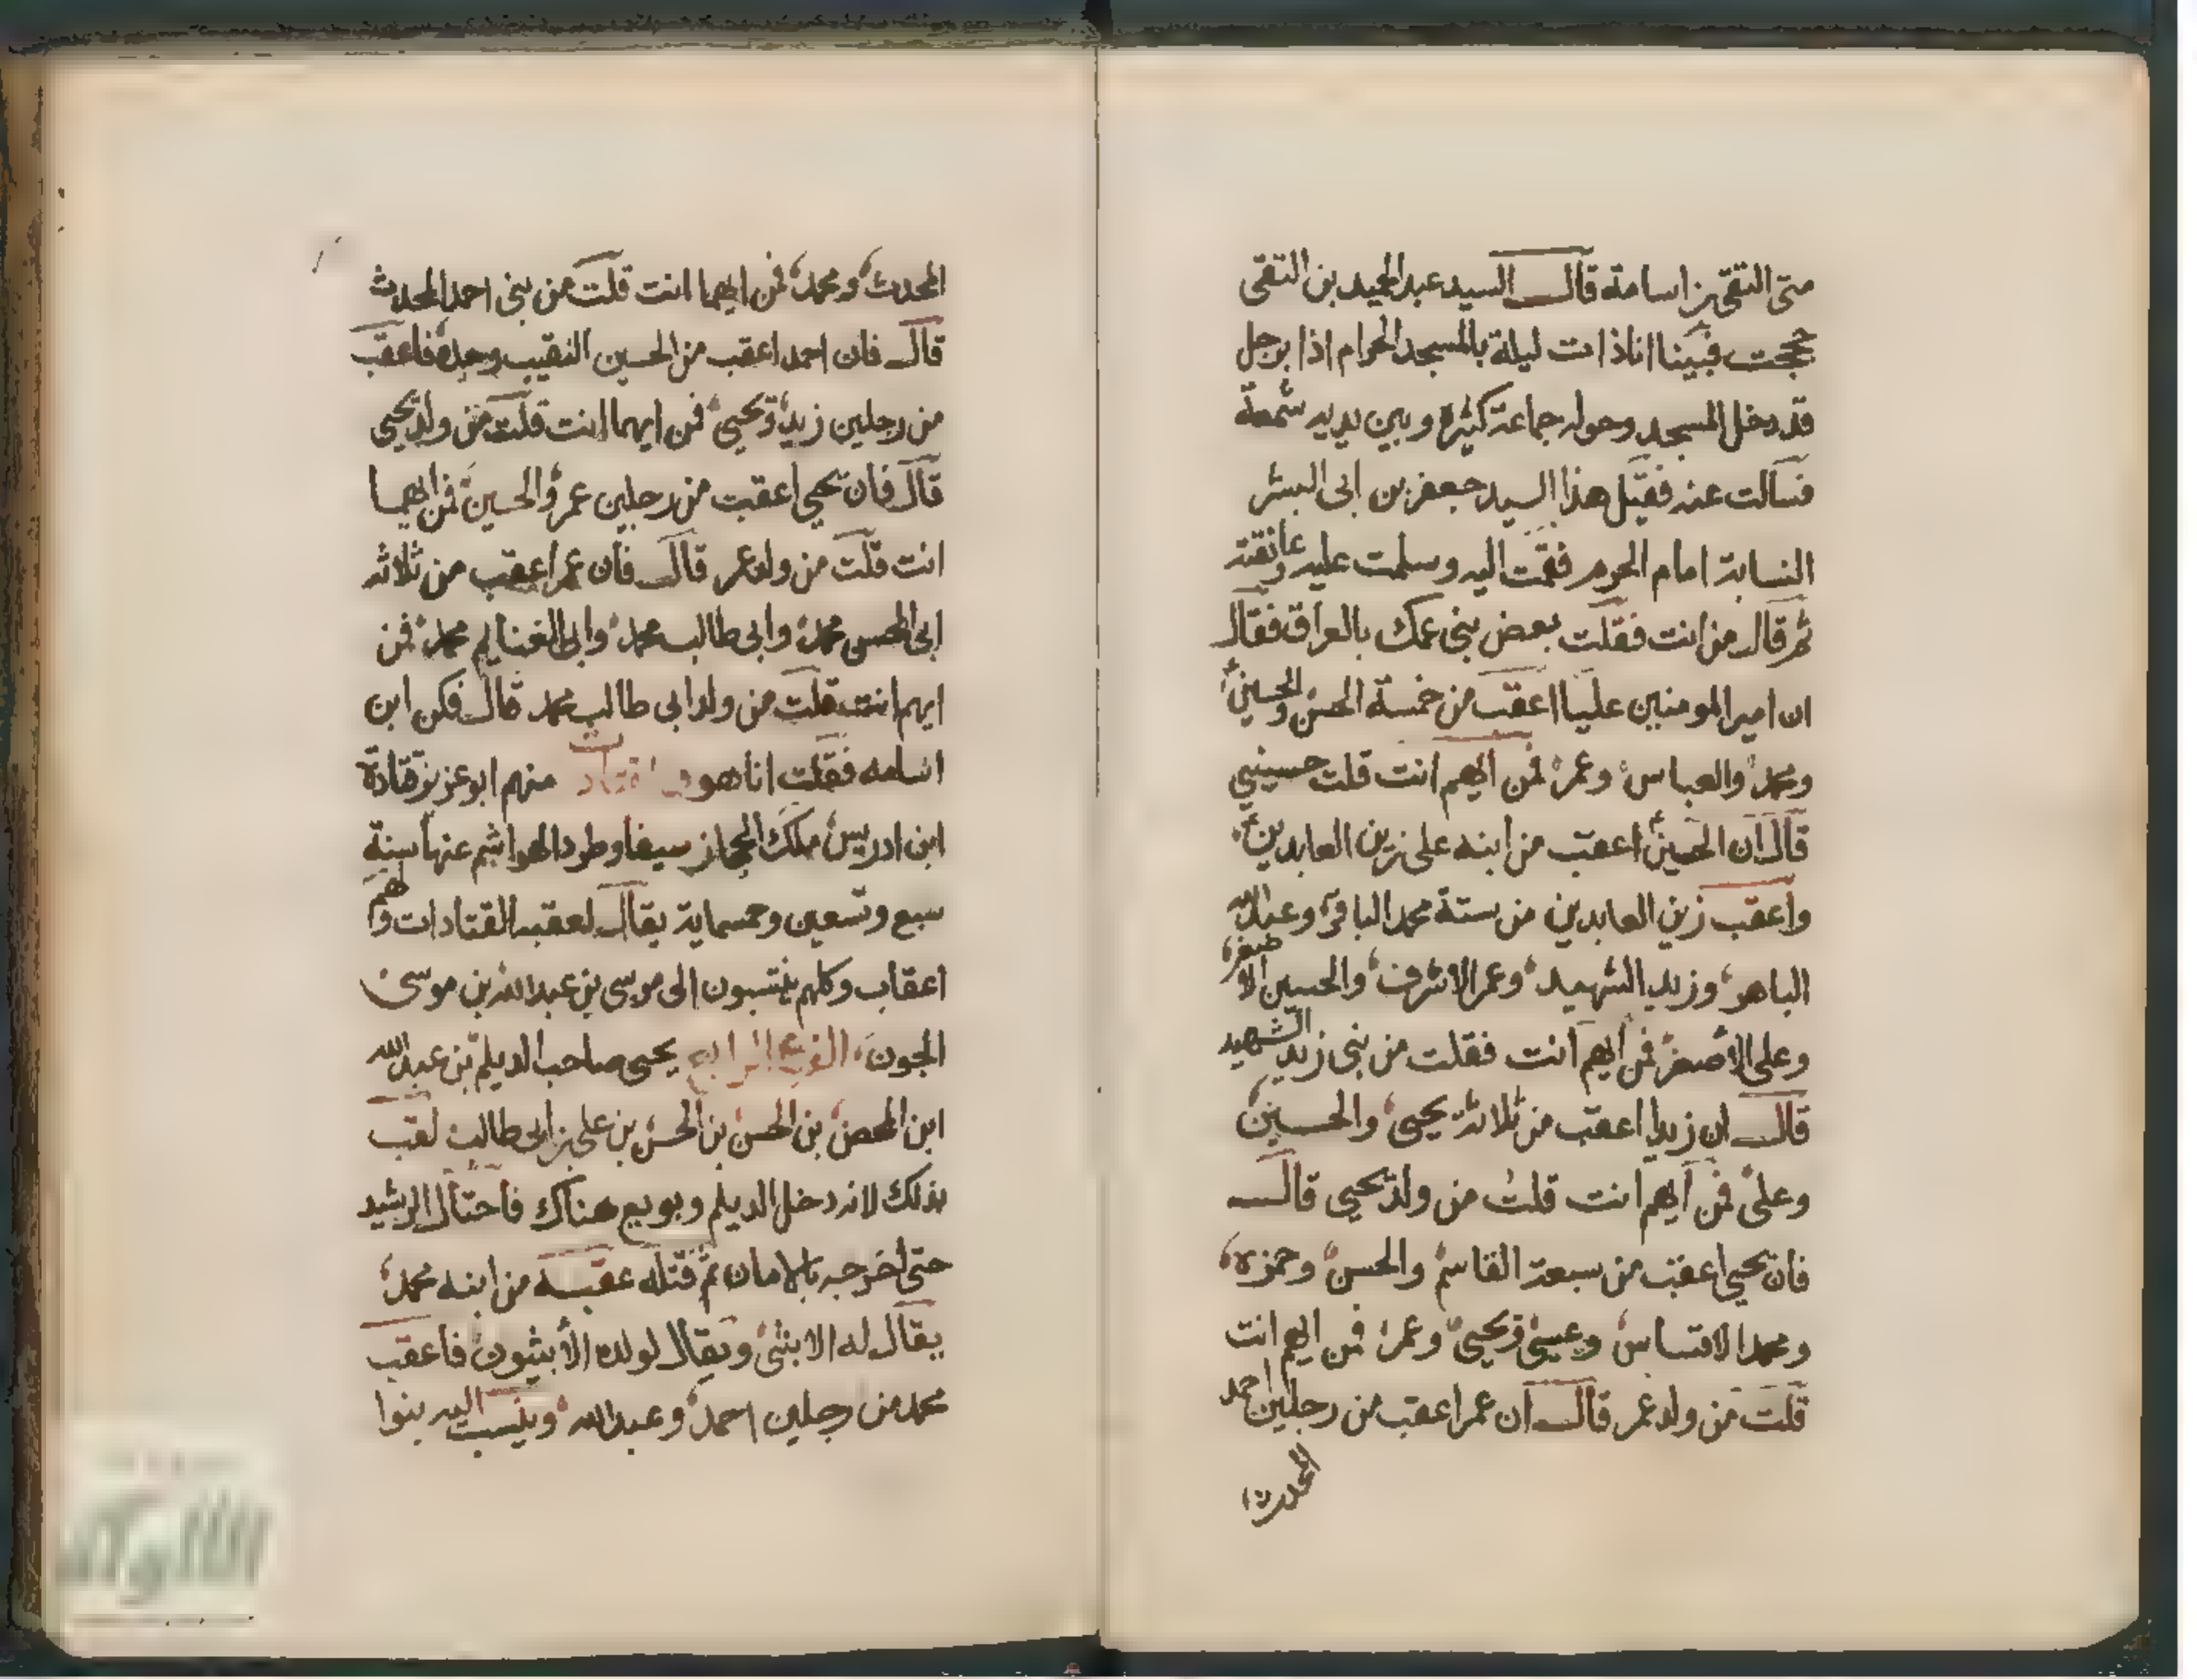 متى التقى بن اسامة قال السيد عبد الحميد بن التقى
حججت فبينا انا ذات ليلة بالمسجد الحرام اذا برجل
قد دخل المسجد وحوله جماعة كثيرة وبين يديه شمعة
فسالت عنه فقيل هذا السيد جعفر بن ابى البشر
النسابة امام الحرم فقمت اليه وسلمت عليه وعانقته
ثم قال من انت فقلت بعض بنى عمك بالعراق فقال
ان امير المومنين عليا اعقب من خمسة الحسن والحسين
ومحمد والعباس وعمر فمن ايهم انت قلت حسينيى
قال ان الحسين اعقب من ابنه على زين العابدين
واعقب زين العابدين من ستة محمد الباقر وعبد الله
الباهر وزيد الشهيد وعمر الاشرف والحسين الاصغر
وعلى الاصغر فمن ايهم انت فقلت من بنى زيد الشهيد
قال ان زيدا اعقب من ثلاثة يحيى والحسين
وعلى فمن ايهم انت قلت من ولد يحيى قال
فان يحيى اعقب من سبعة القاسم والحسن وحمزه
ومحمد الاقساس وعيسى ويحيى وعمر فمن ايهم انت
قلت من ولد عمر قال ان عمر اعقب من رجلين احمد
المحدث
المحدث ومحمد فمن ايهما انت قلت من بنى احمد المحدث
قال فان احمد اعقب من الحسين النقيب وحده فاعقب
من رجلين زيد ويحيى فمن ايهما انت قلت من ولد يحيى
قال فان يحيى اعقب من رجلين عمر والحسين فمن ايهما
انت قلت من ولد عمر قال فان عمر اعقب من ثلاثه
ابى الحسن محمد وابى طالب محمد وابى الغنايم محمد فمن
ايهم انت قلت من ولد ابى طالب محمد قال فكن ابن
اسامه فقلت انا هو منهم ابو عزيز قتادة
ابن ادريس ملك الحجاز سيفا وطرد الهواشم عنها سنة
سبع وتسعين وخمسماية يقال لعقبه القتادات وهم
اعقاب وكلهم ينتسبون الى موسى بن عبد الله بن موسى
الجون الفرع الرابع يحيى صاحب الديلم بن عبد الله
ابن المحض بن الحسن بن الحسن بن على بن ابى طالب لقب
بذلك لانه دخل الديلم وبويع هناك فاحتال الرشيد
حتى اخرجه بالامان ثم قتله عقبه من ابنه محمد
يقال له الابثى ويقال لولده الأبثيون فاعقب
محمد من رجلين احمد وعبد الله وينسب اليه بنوا